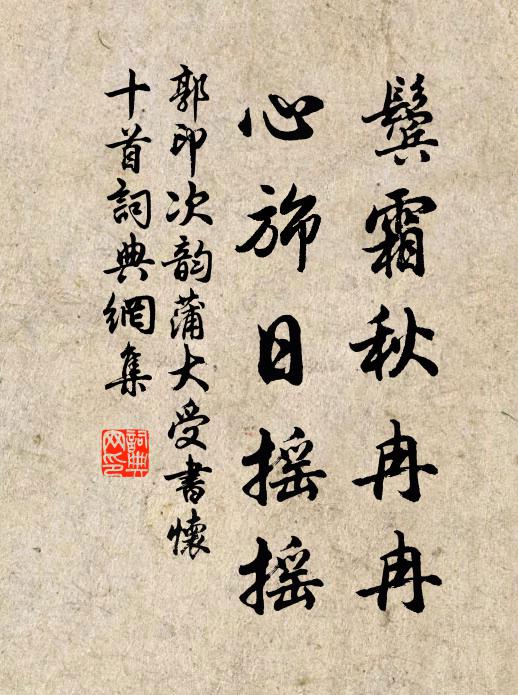 鬓霜秋冉冉
心旆日摇摇
郭印次韵蒲大受書懷
十首詞典網集
詞典网印